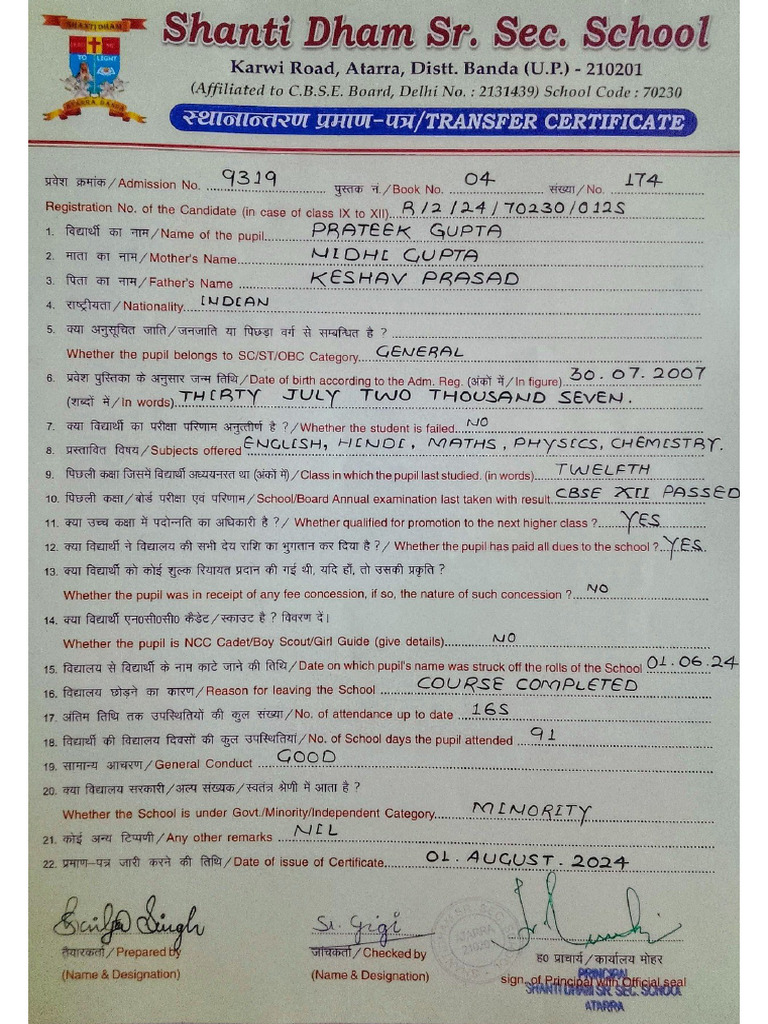 SHANTI DHAM
LEAD ME
TO LIGHT
ATARRA BANDA
Shanti Dham Sr. Sec. School
Karwi Road, Atarra, Distt. Banda (U.P.) - 210201
(Affiliated to C.B.S.E. Board, Delhi No. : 2131439) School Code : 70230
स्थानान्तरण प्रमाण-पत्र/TRANSFER CERTIFICATE
प्रवेश क्रमांक/Admission No. 9319 पुस्तक नं./Book No. 04 संख्या/No. 174
Registration No. of the Candidate (in case of class IX to XII). R/2/24/70230/0125
1. विद्यार्थी का नाम/Name of the pupil PRATEEK GUPTA
2. माता का नाम/Mother's Name NIDHI GUPTA
3. पिता का नाम/Father's Name KESHAV PRASAD
4. राष्ट्रीयता/Nationality INDIAN
5. क्या अनुसूचित जाति/जनजाति या पिछड़ा वर्ग से सम्बन्धित है ?
Whether the pupil belongs to SC/ST/OBC Category GENERAL
6. प्रवेश पुस्तिका के अनुसार जन्म तिथि/Date of birth according to the Adm. Reg. (अंकों में/In figure) 30.07.2007
(शब्दों में/In words) THIRTY JULY TWO THOUSAND SEVEN.
7. क्या विद्यार्थी का परीक्षा परिणाम अनुत्तीर्ण है?/Whether the student is failed NO
8. प्रस्तावित विषय/Subjects offered ENGLISH, HINDI, MATHS, PHYSICS, CHEMISTRY.
9. पिछली कक्षा जिसमें विद्यार्थी अध्ययनरत था (अंकों में)/Class in which the pupil last studied. (in words) TWELFTH
10. पिछली कक्षा/बोर्ड परीक्षा एवं परिणाम/School/Board Annual examination last taken with result CBSE XII PASSED
11. क्या उच्च कक्षा में पदोन्नति का अधिकारी है ?/ Whether qualified for promotion to the next higher class ? YES
12. क्या विद्यार्थी ने विद्यालय की सभी देय राशि का भुगतान कर दिया है ?/ Whether the pupil has paid all dues to the school ? YES.
13. क्या विद्यार्थी को कोई शुल्क रियायत प्रदान की गई थी, यदि हाँ, तो उसकी प्रकृति ?
Whether the pupil was in receipt of any fee concession, if so, the nature of such concession ? NO
14. क्या विद्यार्थी एन0सी0सी0 कैडेट/स्काउट है ? विवरण दें।
Whether the pupil is NCC Cadet/Boy Scout/Girl Guide (give details) NO
15. विद्यालय से विद्यार्थी के नाम काटे जाने की तिथि/Date on which pupil's name was struck off the rolls of the School 01.06.24
16. विद्यालय छोड़ने का कारण/Reason for leaving the School COURSE COMPLETED
17. अंतिम तिथि तक उपस्थितियों की कुल संख्या/No. of attendance up to date 165
18. विद्यार्थी की विद्यालय दिवसों की कुल उपस्थितियां/No. of School days the pupil attended 91
19. सामान्य आचरण/General Conduct GOOD
20. क्या विद्यालय सरकारी/अल्प संख्यक/स्वतंत्र श्रेणी में आता है ?
Whether the School is under Govt./Minority/Independent Category MINORITY
21. कोई अन्य टिप्पणी/Any other remarks NIL
22. प्रमाण-पत्र जारी करने की तिथि/Date of issue of Certificate 01. AUGUST. 2024
Singh Sr. Gigi
ATARRA
210201
तैयारकर्ता/Prepared by जांचकर्ता/Checked by ह0 प्राचार्य/कार्यालय मोहर
(Name & Designation) (Name & Designation) sign. of Principal with Official seal
PRINCIPAL
SHANTI DHAM SR. SEC. SCHOOL
ATARRA